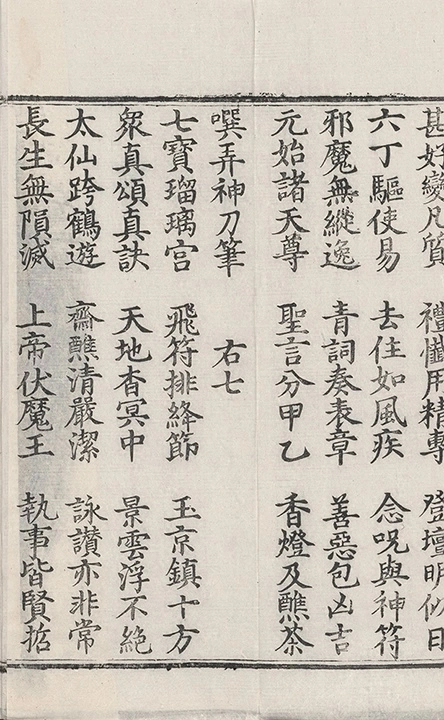 甚好變凡質 禮懺用精專 登壇明似日
六丁驅使易 去住如風疾 念咒與神符
邪魔無縱逸 青詞奏表章 善惡包凶吉
元始諸天尊 聖言分甲乙 香燈及醮茶
噀弄神刀筆 右七
七寶瑠璃宮 飛符排絳節 玉京鎮十方
衆真頌真訣 天地杳冥中 景雲浮不絶
太仙跨鶴遊 齋醮清嚴潔 詠讃亦非常
長生無隕滅 上帝伏魔王 執事皆賢哲